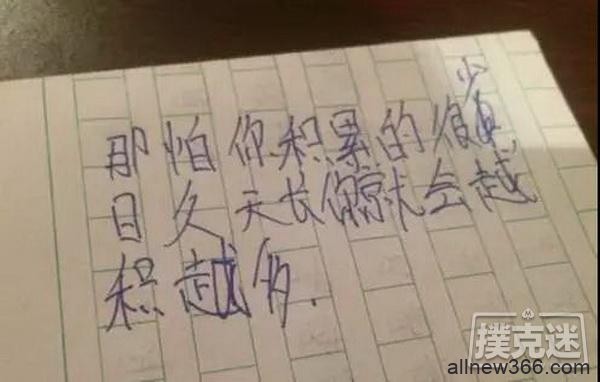 那怕你积累的很少,
日久天长你就会越
积越多.
撲克迷
allnew366.com